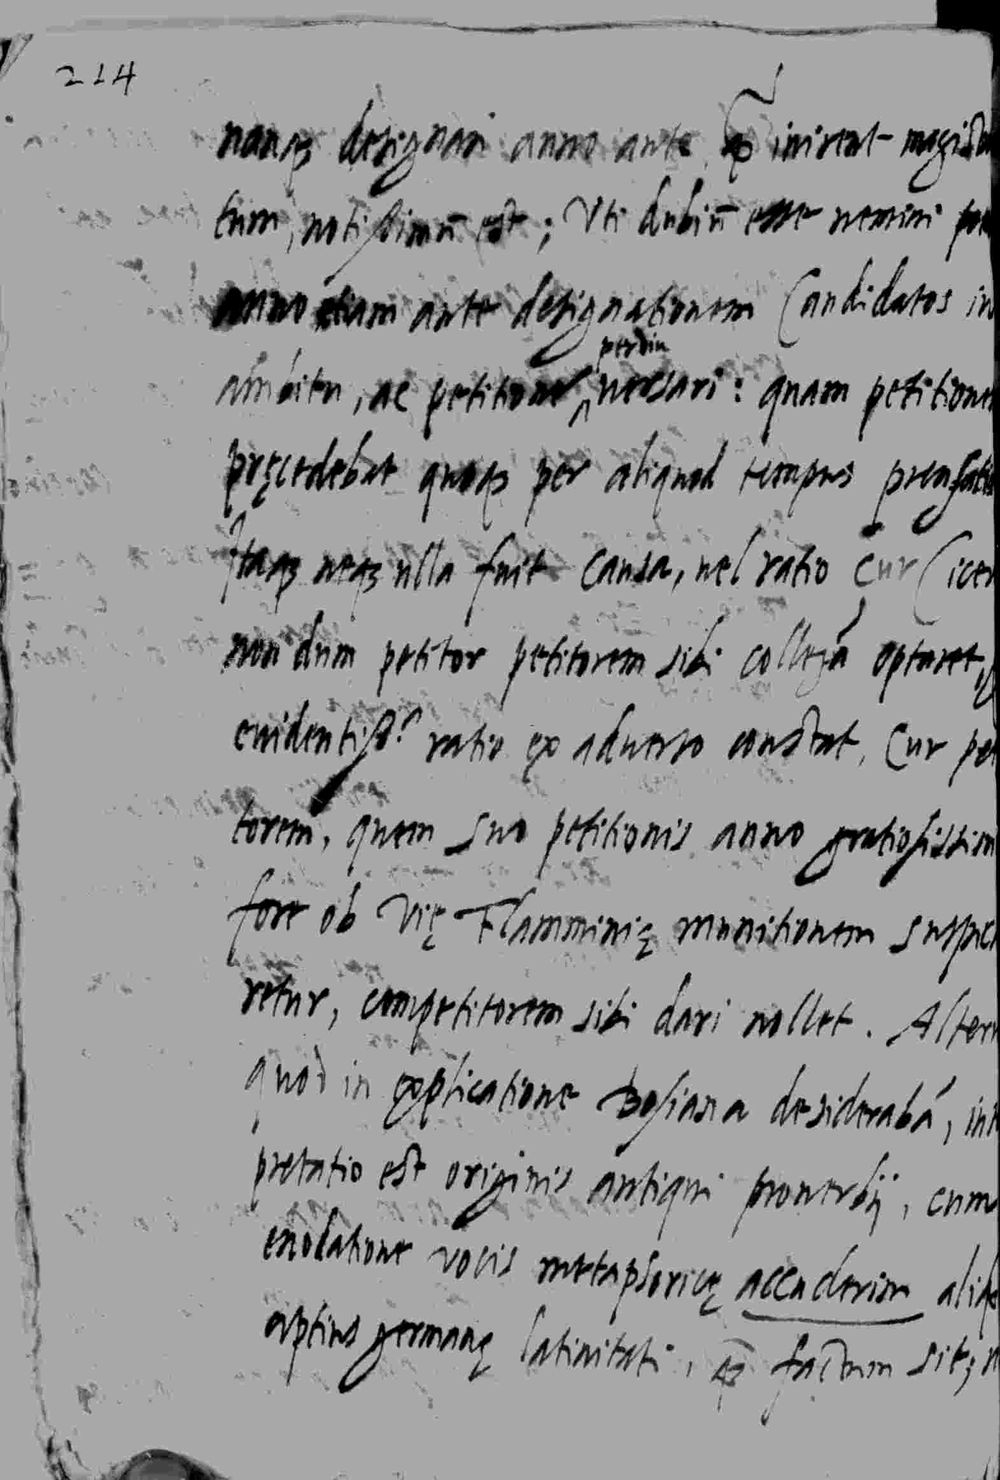 214
nanqȝ designari anno ante, q̃ inirent magistra
tum, notissimũ est; Vti dubiũ esse nemini po
anno etiam ante designationem Candidatos in
ambitu, ac petitione
perdiu
versari: quam petitione
pręcedebat quoqȝ per aliquod tempus prensatio
Itaqȝ neqȝ ulla fuit causa, vel ratio cur Cicer
non dum petitor petitorem sibi collegã optaret,
evidentiss? ratio ex adverso constat, cur pet
torem, quem suo petitionis anno gratiosissim
fore ob Vię Flamminię munitionem suspica
retur, competitorem sibi dari nollet. Alter
quod in explicatione Bosiana desiderabã, int
pretatio est originis antiqui proverbij, cum
enodatione vocis metaphoricę accuderim aliq
aptius germanę latinitati, q̃ factum sit;